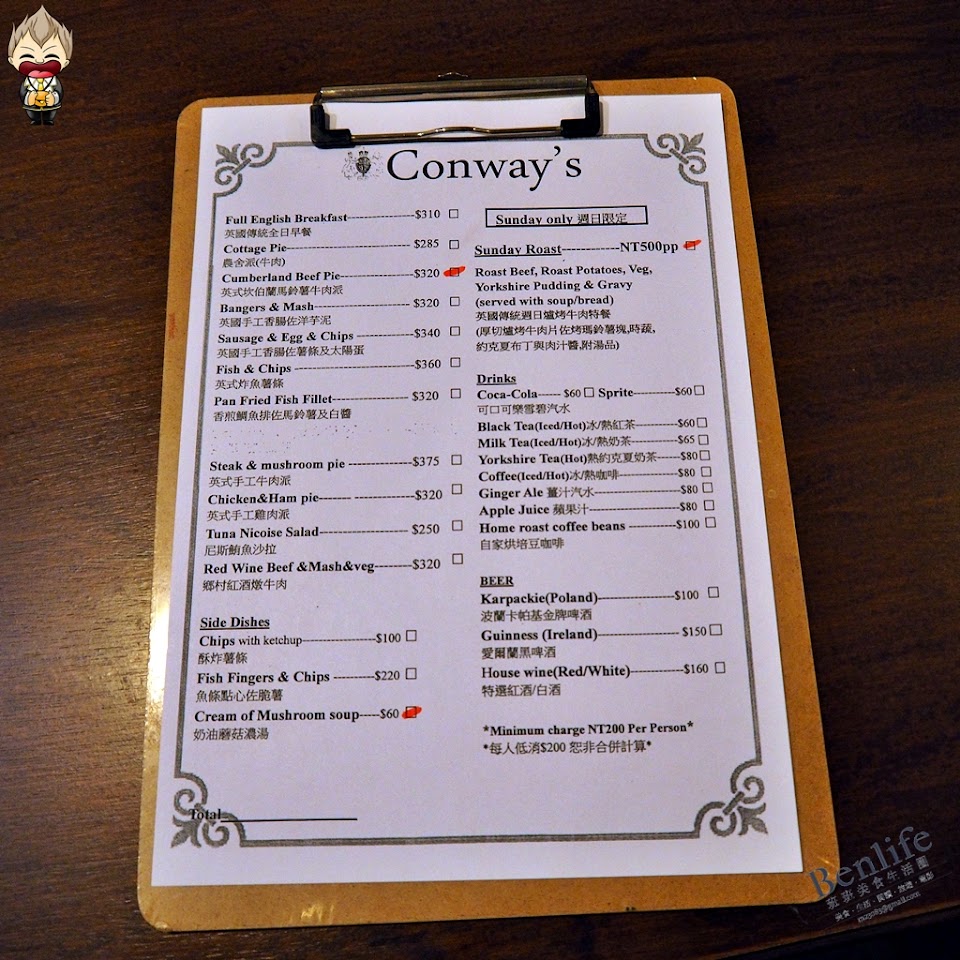 Conway's
Full English Breakfast---------------$310
英國傳統全日早餐
Cottage Pie---------------------------- $285
農舍派(牛肉)
Cumberland Beef Pie----------------$320
英式坎伯蘭馬鈴薯牛肉派
Bangers & Mash---------------------- $320
英國手工香腸佐洋芋泥
Sausage & Egg & Chips ------------- $340
英國手工香腸佐薯條及太陽蛋
Fish & Chips --------------------------$360
英式炸魚薯條
Pan Fried Fish Fillet----------------- $320
香煎鯛魚排佐馬鈴薯及白醬
Steak & mushroom pie --------------$375
英式手工牛肉派
Chicken&Ham pie------- -------------$320
英式手工雞肉派
Tuna Nicoise Salad-------------------- $250
尼斯鮪魚沙拉
Red Wine Beef &Mash&veg---------$320
鄉村紅酒燉牛肉
Side Dishes
Chips with ketchup------------------$100
酥炸薯條
Fish Fingers & Chips ----------$220
魚條點心佐脆薯
Cream of Mushroom soup-----$60
奶油蘑菇濃湯
Total
Sunday only 週日限定
Sunday Roast--------------NT500pp
Roast Beef, Roast Potatoes, Veg,
Yorkshire Pudding & Gravy
(served with soup/bread)
英國傳統週日爐烤牛肉特餐
(厚切爐烤牛肉片佐烤瑪鈴薯塊,時蔬,
約克夏布丁與肉汁醬,附湯品)
Drinks
Coca-Cola------ $60 Sprite-----------$60
可口可樂雪碧汽水
Black Tea(Iced/Hot)冰/熱紅茶-----------$60
Milk Tea(Iced/Hot)冰/熱奶茶------------$65
Yorkshire Tea(Hot)熱約克夏奶茶------$80
Coffee(Iced/Hot)冰/熱咖啡---------------$80
Ginger Ale 薑汁汽水---------------------$80
Apple Juice 蘋果汁-----------------------$80
Home roast coffee beans ------------$100
自家烘培豆咖啡
BEER
Karpackie(Poland)--------------------$100
波蘭卡帕基金牌啤酒
Guinness (Ireland)--------------------- $150
愛爾蘭黑啤酒
House wine(Red/White)--------------$160
特選紅酒/白酒
*Minimum charge NT200 Per Person*
*每人低消$200 恕非合併計算*
Benlife
班班美食生活圈